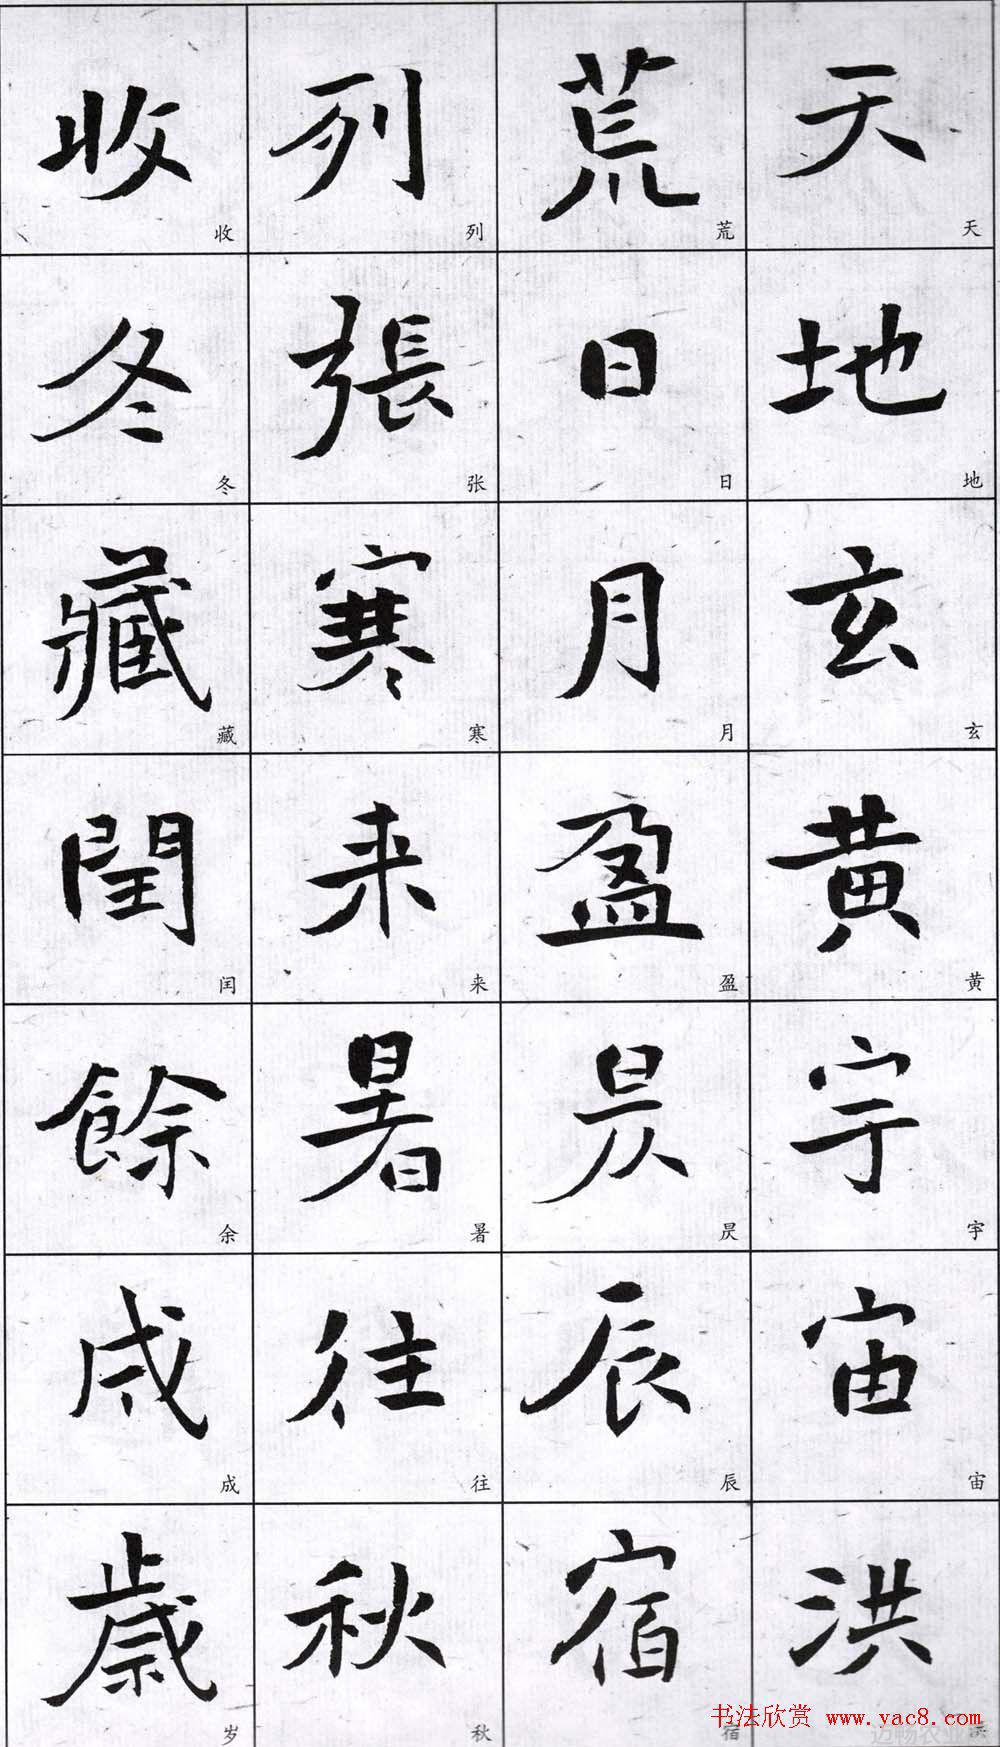 天地玄黄宇宙洪
荒日月盈昃辰宿
列張寒来暑往秋
收冬藏閏餘成歲
天地玄黄宇宙
荒日月盈昃辰宿
列张寒来暑往秋
收冬藏闰余成岁
书法欣赏 www.yac8.com